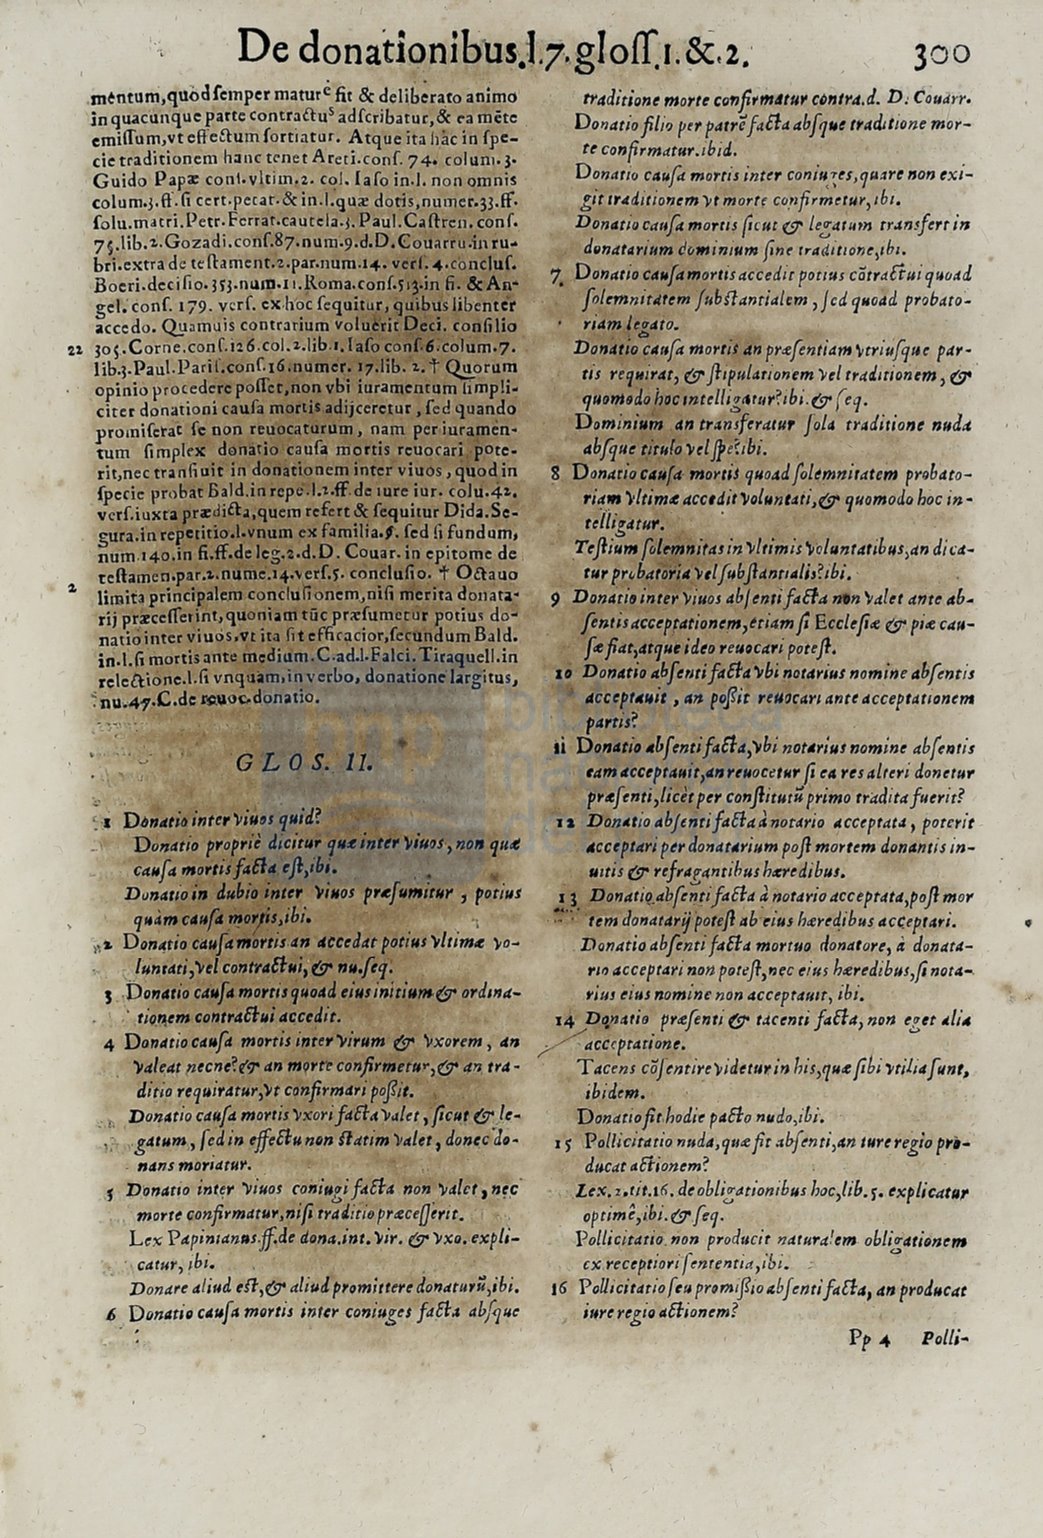 De donationibus.l.7.gloss.1.&.2. 300
mentum,quòd semper maturè fit & deliberato animo
in quacunque parte contractus adscribatur,& ea mēte
emissum,vt effectum sortiatur. Atque ita hàc in spe-
cie traditionem hanc tenet Areti.cons. 74. colum.3.
Guido Papæ cons.vltim.2. col. Iaso in.l. non omnis
colum.3.ff.si cert.petat.& in.l.quæ dotis,numer.33.ff.
solu.matri.Petr.Ferrat.cautela.3.Paul.Castren. cons.
75.lib.2.Gozadi.cons.87.num.9.d.D.Couarru.in ru-
bri.extra de testament.2.par.num.14. vers. 4.conclus.
Boeri.decisio.353.num.11.Roma.cons.513.in fi. & An-
gel. cons. 179. vers. ex hoc sequitur, quibus libenter
accedo. Quamuis contrarium voluerit Deci. consilio
22 305.Corne.cons.126.col.2.lib.1.Iaso cons.6.colum.7.
lib.3.Paul.Paris.cons.16.numer. 17.lib. 2.† Quorum
opinio procedere posset,non vbi iuramentum simpli-
citer donationi causa mortis adijceretur , sed quando
promiserat se non reuocaturum, nam per iuramen-
tum simplex donatio causa mortis reuocari pote-
rit,nec transiuit in donationem inter viuos , quod in
specie probat Bald.in repe.l.2.ff.de iure iur. colu.42.
vers.iuxta prædicta,quem refert & sequitur Dida.Se-
gura.in repetitio.l.vnum ex familia.§. sed si fundum,
num.140.in fi.ff.de leg.2.d.D. Couar. in epitome de
testamen.par.2.nume.14.vers.5. conclusio. † Octauo
2 limita principalem conclusionem,nisi merita donata-
rij præcesserint,quoniam tūc præsumetur potius do-
natio inter viuos,vt ita sit efficacior,secundum Bald.
in.l.si mortis ante medium.C.ad.l.Falci.Tiraquell.in
relectione.l.si vnquam,in verbo, donatione largitus,
nu.47.C.de reuoc.donatio.
GLOS. II.
1 Donatio inter viuos quid?
Donatio propriè dicitur quæ inter viuos, non quæ
causa mortis facta est,ibi.
Donatio in dubio inter viuos præsumitur , potius
quàm causa mortis,ibi.
2 Donatio causa mortis an accedat potius vltimæ vo-
luntati,vel contractui,& nu.seq.
3 Donatio causa mortis quoad eius initium & ordina-
tionem contractui accedit.
4 Donatio causa mortis inter virum & vxorem, an
valeat necne?& an morte confirmetur,& an tra-
ditio requiratur,vt confirmari possit.
Donatio causa mortis vxori facta valet, sicut & le-
gatum, sed in effectu non statim valet, donec do-
nans moriatur.
5 Donatio inter viuos coniugi facta non valet, nec
morte confirmatur,nisi traditio præcesserit.
Lex Papinianus.ff.de dona.int.vir. & vxo. expli-
catur, ibi.
Donare aliud est,& aliud promittere donaturū,ibi.
6 Donatio causa mortis inter coniuges facta absque
traditione morte confirmatur contra.d. D. Couarr.
Donatio filio per patrē facta absque traditione mor-
te confirmatur.ibid.
Donatio causa mortis inter coniuges,quare non exi-
git traditionem vt morte confirmetur, ibi.
Donatio causa mortis sicut & legatum transfert in
donatarium dominium sine traditione,ibi.
7 Donatio causa mortis accedit potius cōtractui quoad
solemnitatem substantialem , sed quoad probato-
riam legato.
Donatio causa mortis an præsentiam vtriusque par-
tis requirat, & stipulationem vel traditionem, &
quomodo hoc intelligatur?ibi.& seq.
Dominium an transferatur sola traditione nuda
absque titulo vel spe?ibi.
8 Donatio causa mortis quoad solemnitatem probato-
riam vltimæ accedit voluntati,& quomodo hoc in-
telligatur.
Testium solemnitas in vltimis voluntatibus,an dica-
tur probatoria vel substantialis?ibi.
9 Donatio inter viuos absenti facta non valet ante ab-
sentis acceptationem,etiam si Ecclesiæ & piæ cau-
sæ fiat,atque ideo reuocari potest.
10 Donatio absenti facta vbi notarius nomine absentis
acceptauit , an possit reuocari ante acceptationem
partis?
11 Donatio absenti facta,vbi notarius nomine absentis
eam acceptauit,an reuocetur si ea res alteri donetur
præsenti,licèt per constitutū primo tradita fuerit?
12 Donatio absenti facta à notario acceptata, poterit
acceptari per donatarium post mortem donantis in-
uitis & refragantibus hæredibus.
13 Donatio absenti facta à notario acceptata,post mor
tem donatarij potest ab eius hæredibus acceptari.
Donatio absenti facta mortuo donatore, à donata-
rio acceptari non potest,nec eius hæredibus,si nota-
rius eius nomine non acceptauit, ibi.
14 Donatio præsenti & tacenti facta, non eget alia
acceptatione.
Tacens cōsentire videtur in his,quæ sibi vtilia sunt,
ibidem.
Donatio fit hodie pacto nudo,ibi.
15 Pollicitatio nuda, quæ fit absenti,an iure regio pro-
ducat actionem?
Lex.2.tit.16. de obligationibus hoc,lib.5. explicatur
optimè,ibi.& seq.
Pollicitatio non producit naturalem obligationem
ex receptiori sententia,ibi.
16 Pollicitatio seu promissio absenti facta, an producat
iure regio actionem?
Pp 4 Polli-